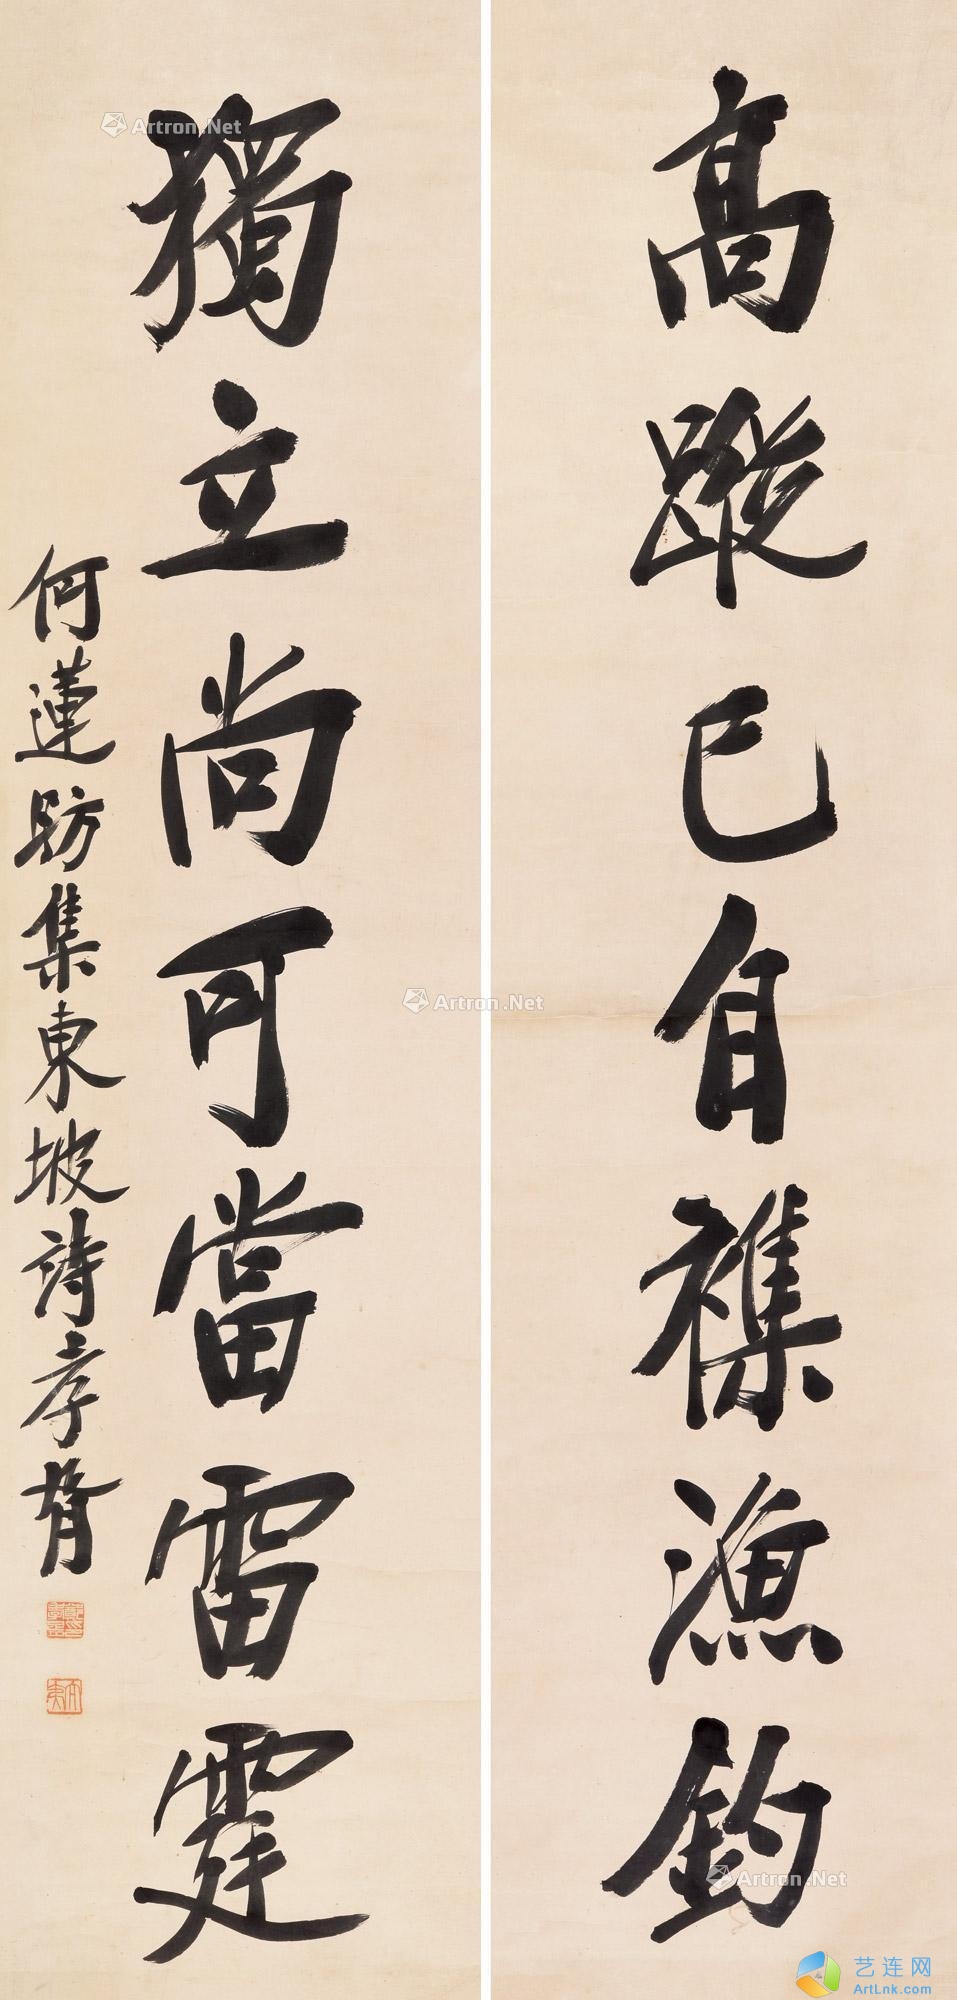 高蹤已自襍漁釣
獨立尚可當雷霆
何蓮舫集東坡詩孝胥
Artron.Net
Artron.Net
Artron.Net
艺连网
ArtLnk.com